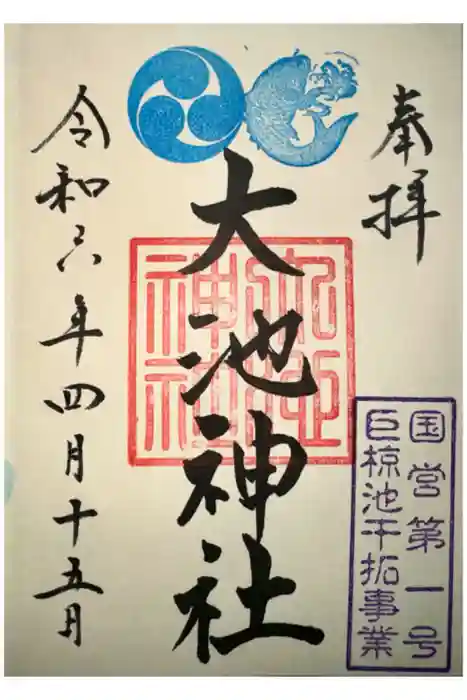 奉拝
国営第一号
巨椋池干拓事業
大池神社
大池神社
令和六年四月十五日